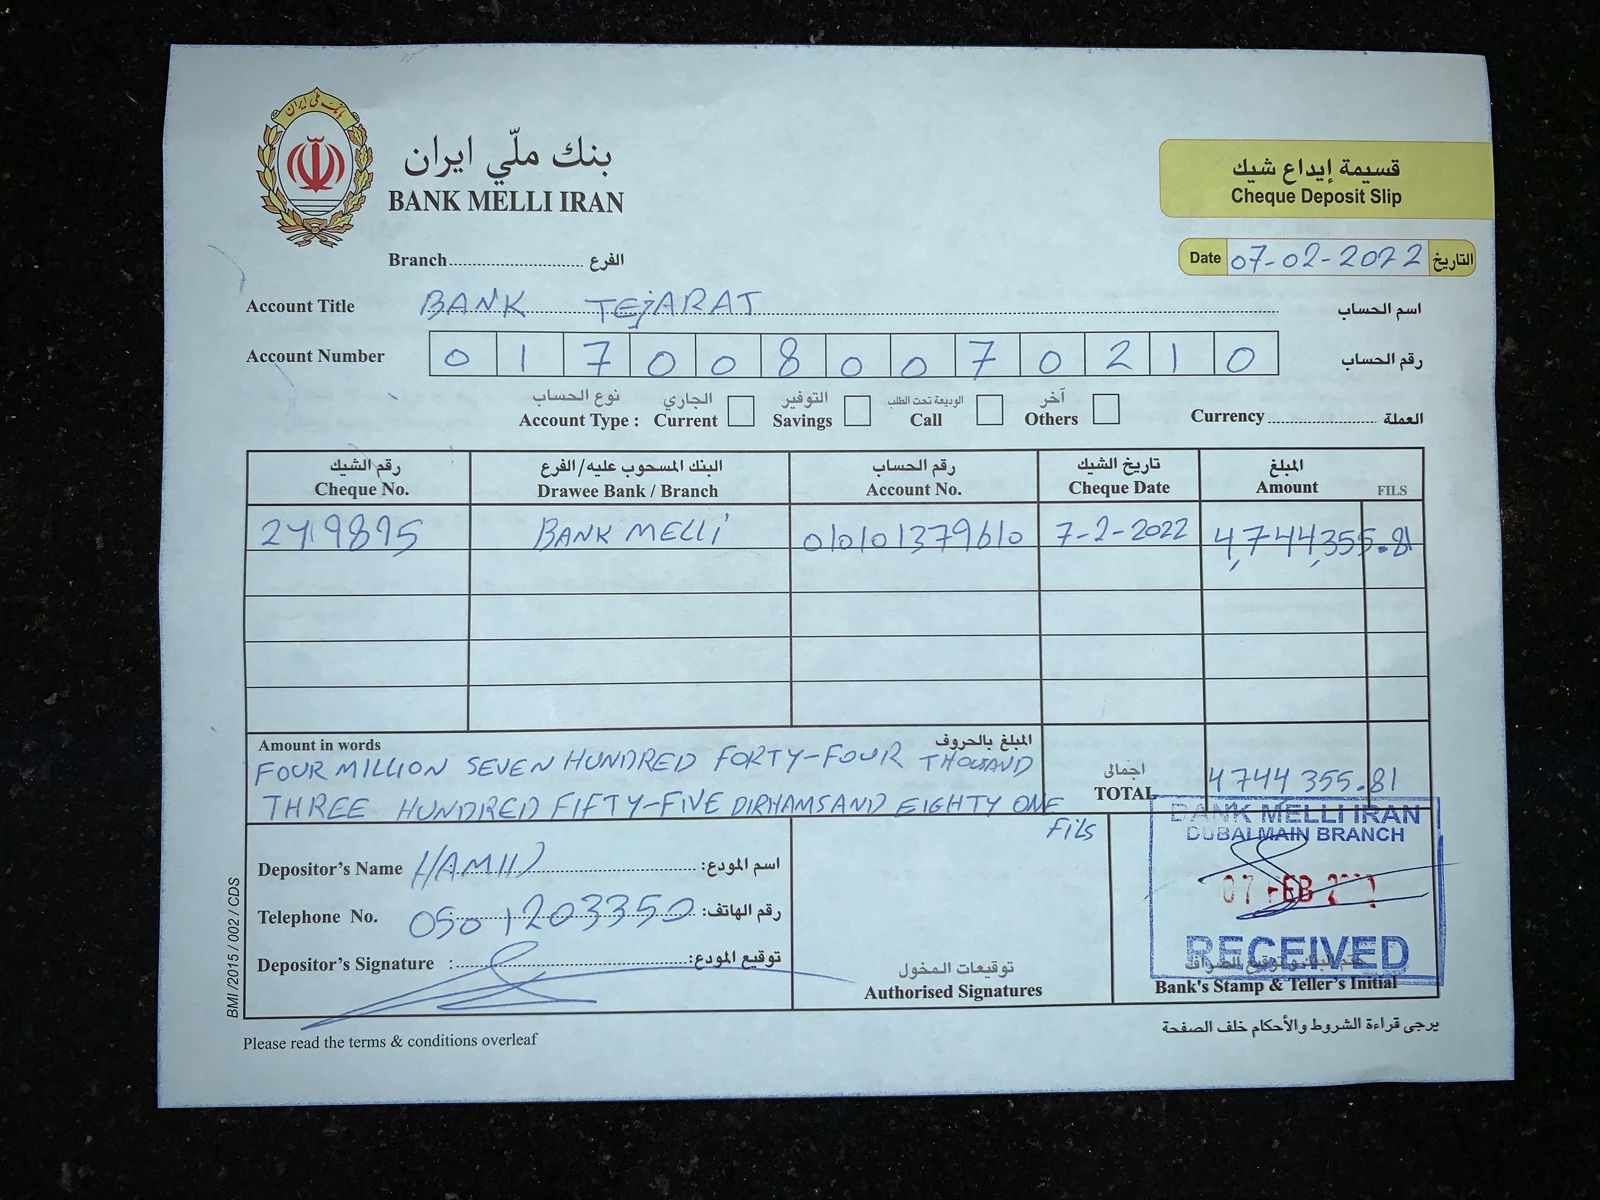 بانک ملی ایران
بنك ملّي ايران
BANK MELLI IRAN
قسيمة إيداع شيك
Cheque Deposit Slip
Date 07-02-2022 التاريخ
Branch.......................... الفرع
Account Title BANK TEJARAT اسم الحساب
Account Number 0 1 7 0 0 8 0 0 7 0 2 1 0 رقم الحساب
نوع الحساب الجاري التوفير الوديعة تحت الطلب آخر
Account Type : Current Savings Call Others Currency.................... العملة
رقم الشيك البنك المسحوب عليه/الفرع رقم الحساب تاريخ الشيك المبلغ
Cheque No. Drawee Bank / Branch Account No. Cheque Date Amount FILS
BANK MELLI 010101379610 7-2-2022 4,744,355.81
Amount in words المبلغ بالحروف
FOUR MILLION SEVEN HUNDRED FORTY-FOUR THOUSAND
THREE HUNDRED FIFTY-FIVE DIRHAMS AND EIGHTY ONE
Fils
اجمالى
TOTAL 4744355.81
BANK MELLI IRAN
DUBAI MAIN BRANCH
07 FEB
RECEIVED
Depositor's Name HAMID اسم المودع:
Telephone No. 050 1203350 رقم الهاتف:
Depositor's Signature : توقيع المودع:
توقيعات المخول
Authorised Signatures
ختم البنك وتوقيع الصراف
Bank's Stamp & Teller's Initial
BMI /2015 / 002 / CDS
Please read the terms & conditions overleaf
يرجى قراءة الشروط والأحكام خلف الصفحة